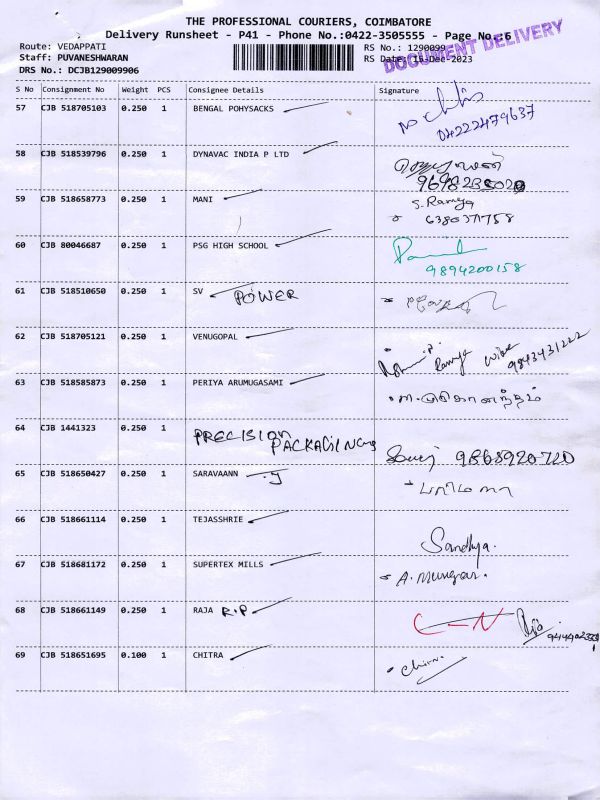 THE PROFESSIONAL COURIERS, COIMBATORE
Delivery Runsheet - P41 - Phone No.:0422-3505555 - Page No.:6
DOCUMENT DELIVERY
Route: VEDAPPATI RS No.: 1290099
Staff: PUVANESHWARAN RS Date: 15-Dec-2023
DRS No.: DCJB129009906
S No Consignment No Weight PCS Consignee Details Signature
57 CJB 518705103 0.250 1 BENGAL POHYSACKS
04222479637
58 CJB 518539796 0.250 1 DYNAVAC INDIA P LTD
59 CJB 518658773 0.250 1 MANI S. Ramya
60 CJB 80046687 0.250 1 PSG HIGH SCHOOL
9894200158
61 CJB 518510650 0.250 1 SV POWER
62 CJB 518705121 0.250 1 VENUGOPAL
Ramya wife 9843431222
63 CJB 518585873 0.250 1 PERIYA ARUMUGASAMI
64 CJB 1441323 0.250 1 PRECISION
PACKAGING
9868920720
65 CJB 518650427 0.250 1 SARAVAANN .J
66 CJB 518661114 0.250 1 TEJASSHRIE
Sandhya.
67 CJB 518681172 0.250 1 SUPERTEX MILLS
A. Murugan.
68 CJB 518661149 0.250 1 RAJA R.P C-N
69 CJB 518651695 0.100 1 CHITRA